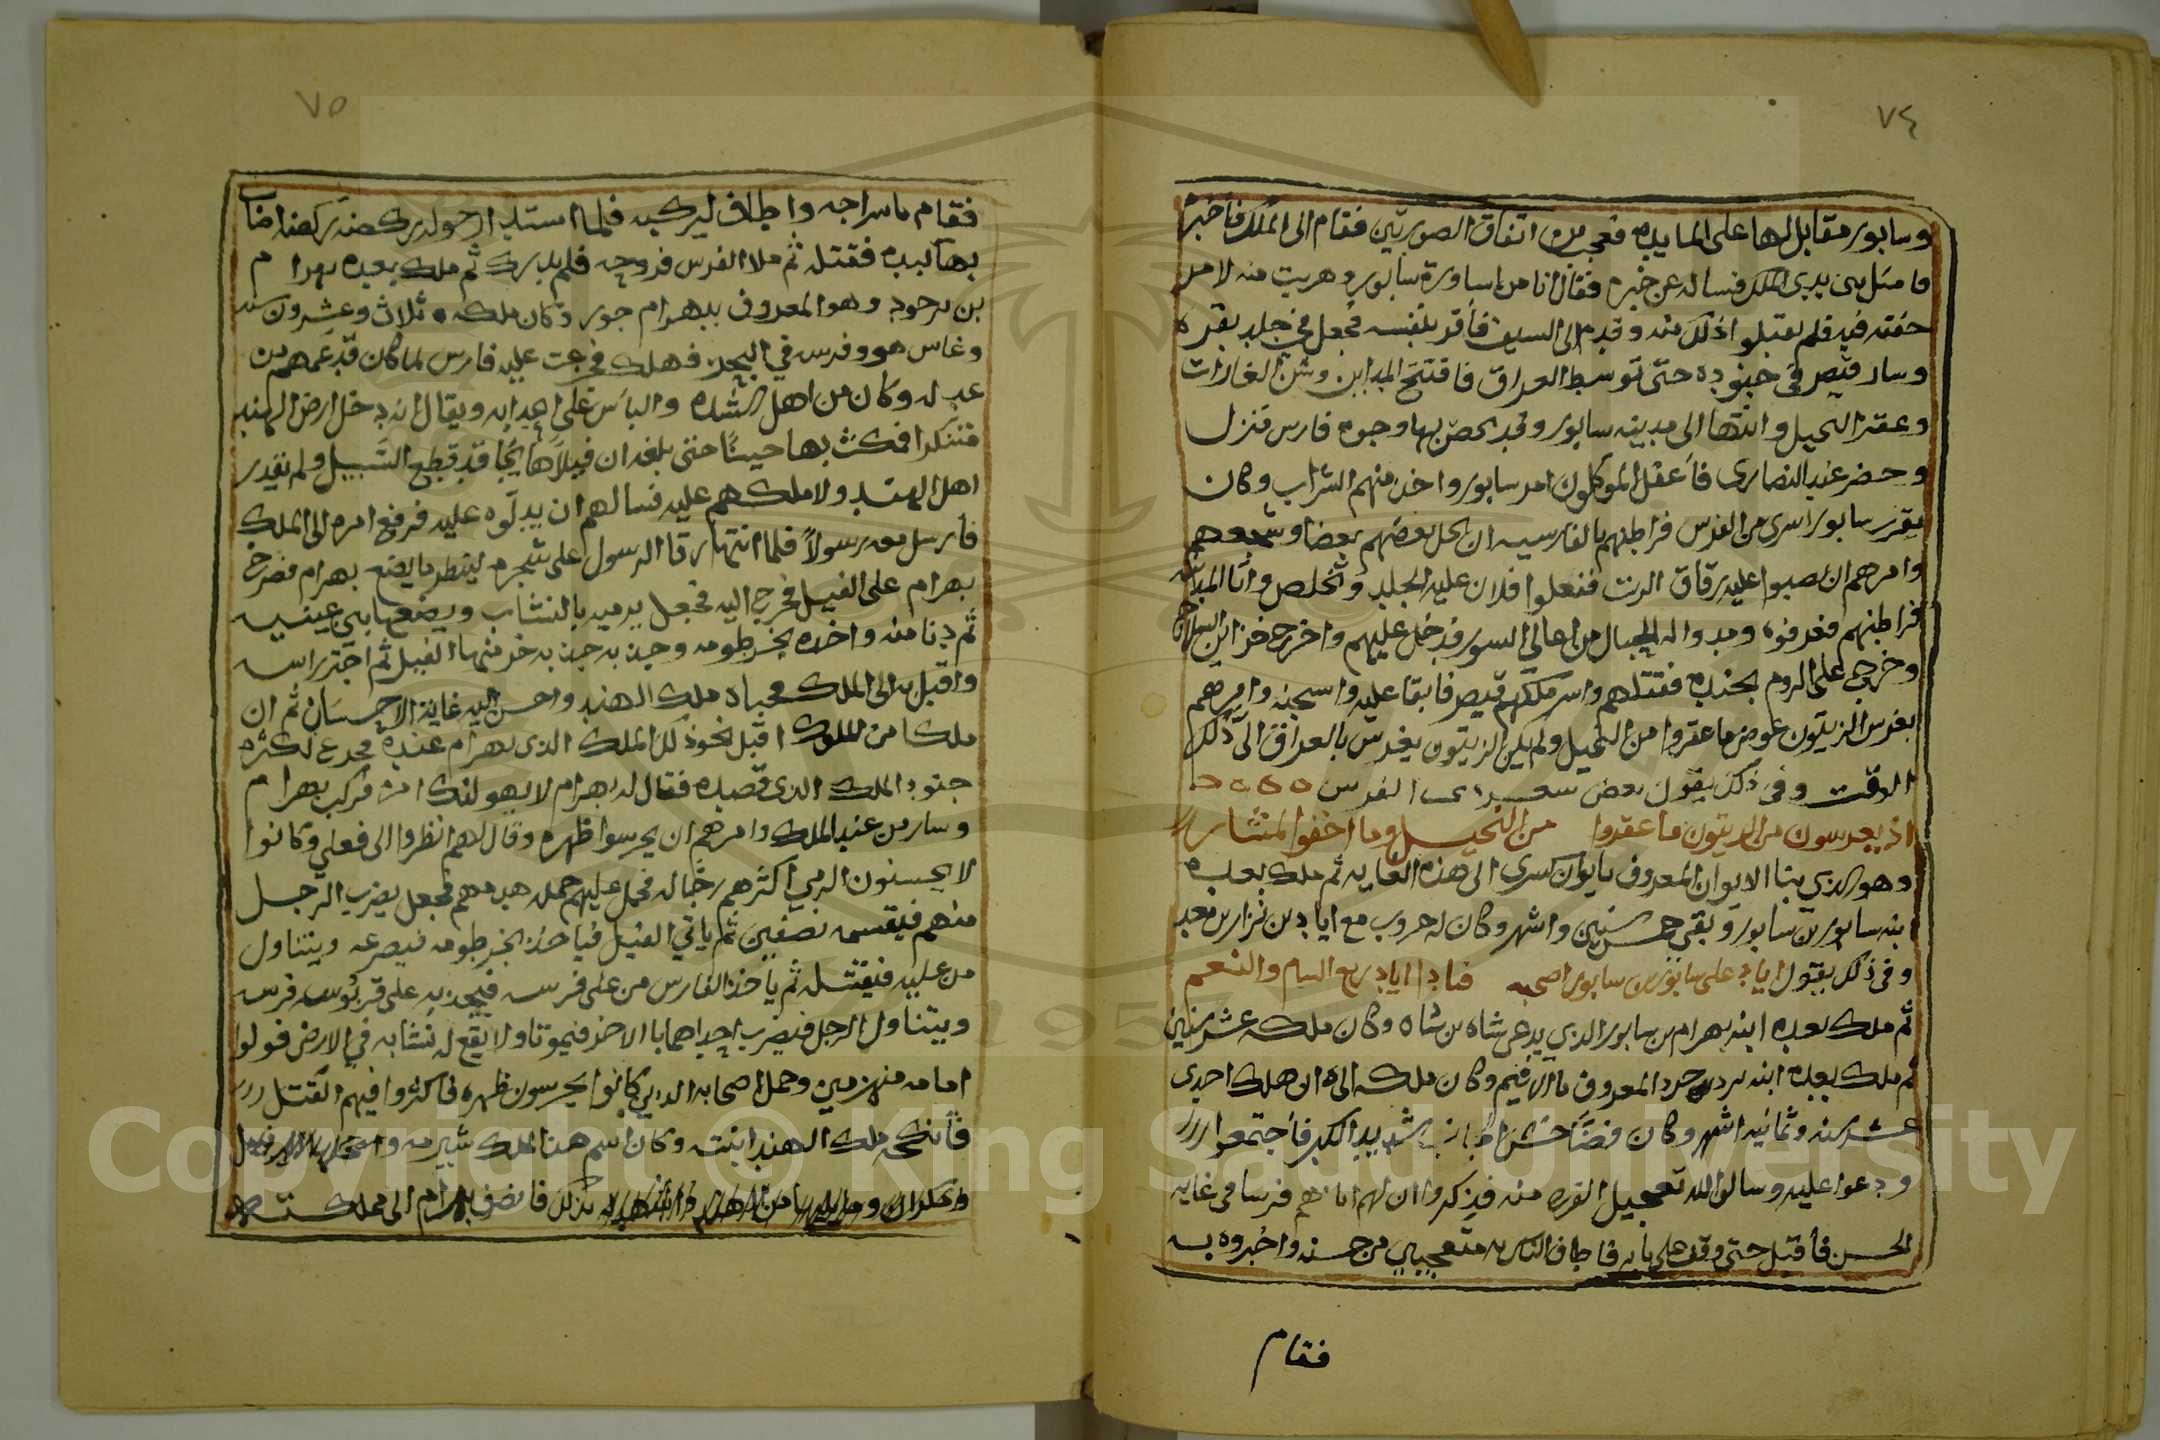 ٧٤
وسابور مقابل لها على المايده فعجب من اتفاق الصورتين فقام الى الملك فاخبره
فامثل بين يدي الملك فساله عن خبره فقال انا من اساورة سابور وهربت منه لامر
خفته فيه فلم يقبلوا ذلك منه وقدم الى السيف فأقر بنفسه فجعل في جلد بقره
وسار قيصر في جنوده حتى توسط العراق فافتتح المداين وشن الغارات
وعقر النخيل وانتها الى مدينه سابور وقد تحصن بها وجوه فارس فنزل
وحضر عيد النصارى فأغفل الموكلون امر سابور واخذ منهم الشراب وكان
بقرب سابور اسرى من الفرس فراطنهم بالفارسيه ان يحل بعضهم بعضا وشجعهم
وامرهم ان يصبوا عليه زقاق الزيت ففعلوا فلان عليه الجلد وتخلص وأتا المدينه
فراطنهم فعرفوه ومدوا له الحبال من اعالي السور فدخل عليهم واخرج خزاين السلاح
وخرج على الروم بجنده فقتلهم واسر ملكهم قيصر فابقا عليه واسجنه وامرهم
بغرس الزيتون عوض ما عقروا من النخيل ولم يكن الزيتون يغرس بالعراق الى ذلك
الوقت وفي ذلك يقول بعض شعراء الفرس
اذ يغرسون من الزيتون ما عقروا من النخيل وما احفوا لمنشار
وهو الذي بنا الايوان المعروف بايوان كسرى الى هذه الغايه ثم ملك بعده
ابنه سابور بن سابور وبقي خمس سنين واشهر وكان له حروب مع اياد بن نزار بن معد
وفي ذلك يقول اياد على سابور بن سابور اصبحت قباب اياد ربع الشام والنعم
ثم ملك بعده ابنه بهرام بن سابور الذي يدعى شاه بن شاه وكان ملكه عشر سنين
ثم ملك بعده ابنه يزدجرد المعروف بالاثيم وكان ملكه الى ان هلك احدى
عشر سنه وثمانيه اشهر وكان فضا خشن شديد الكبر فأجتمعوا
ودعوا عليه وسالوا الله تعجيل الفرج منه فذكروا ان لهم اتاهم فرسا في غايه
الحسن فأقبل حتى وقف على بابه فاطاف الناس به متعجبين من حسنه واخبروه به
فقام
٧٥
فقام باسراجه واطاف ليركبه فلما استدار حوله ركضه ركضة اصاب
بها كبده فقتله ثم ملا الفرس فروجه فلم يدرك ثم ملك بعده بهرام
بن يزدجرد وهو المعروف ببهرام جور وكان ملكه ثلاث وعشرون سنه
وغاص هو وفرسه في البحر فهلك فجزعت عليه فارس لما كان قد عمهم من
عدله وكان من اهل الشده والبأس على اعدايه ويقال انه دخل ارض الهند
متنكرا فمكث بها حينًا حتى بلغه ان فيلاً هايجًا قد قطع السبيل ولم يقدر
اهل الهند ولا ملكهم عليه فسالهم ان يدلوه عليه فرفع امره الى الملك
فأرسل معه رسولاً فلما انتها رقا الرسول على شجره لينظر ما يصنع بهرام فصرخ
بهرام على الفيل فخرج اليه فجعل يرميه بالنشاب ويضعها بين عينيه
ثم دنا منه واخذه بخرطومه وجذبه جذبه خر منها الفيل ثم احتز راسه
واقبل به الى الملك فحباه ملك الهند واحسن اليه غاية الاحسان ثم ان
ملكا من الملوك اقبل نحو ذلك الملك الذي بهرام عنده فجزع لكثرة
جنود الملك الذي قصده فقال له بهرام لا يهولنك امره فركب بهرام
وسار من عند الملك وامرهم ان يحرسوا ظهره وقال لهم انظروا الى فعلي وكانوا
لا يحسنون الرمي اكثرهم رجاله فحمل عليهم حمله هدهم فجعل يضرب الرجل
منهم فيقسمه نصفين ثم يأتي الفيل فيأخذ بخرطومه فيصرعه ويتناول
من عليه فيقتله ثم يأخذ الفارس من على فرسه فيجذبه على قربوس فرسه
ويتناول الرجل فيضرب احداهما بالاخر فيموتا ولا يقع له نشابه في الارض فولوا
امامه منهزمين وحمل اصحابه الذين كانوا يحرسون ظهره فاكثروا فيهم القتل
فأنكحه ملك الهند ابنته وكان اسم هذا الملك شيرمه
بذلك فانصرف بهرام الى مملكته
Copyright © King Saud University
1957